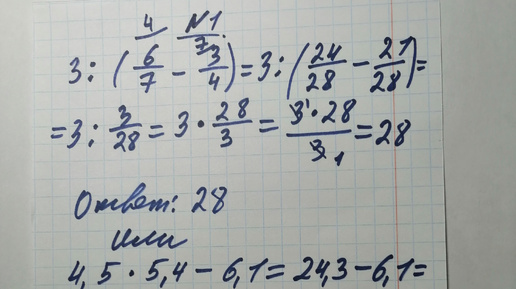 №1
3 : (6/7 - 3/4) = 3 : (24/28 - 21/28) =
= 3 : 3/28 = 3 · 28/3 = 3 · 28/3 = 28
Ответ: 28
или
4,5 · 5,4 - 6,1 = 24,3 - 6,1 =